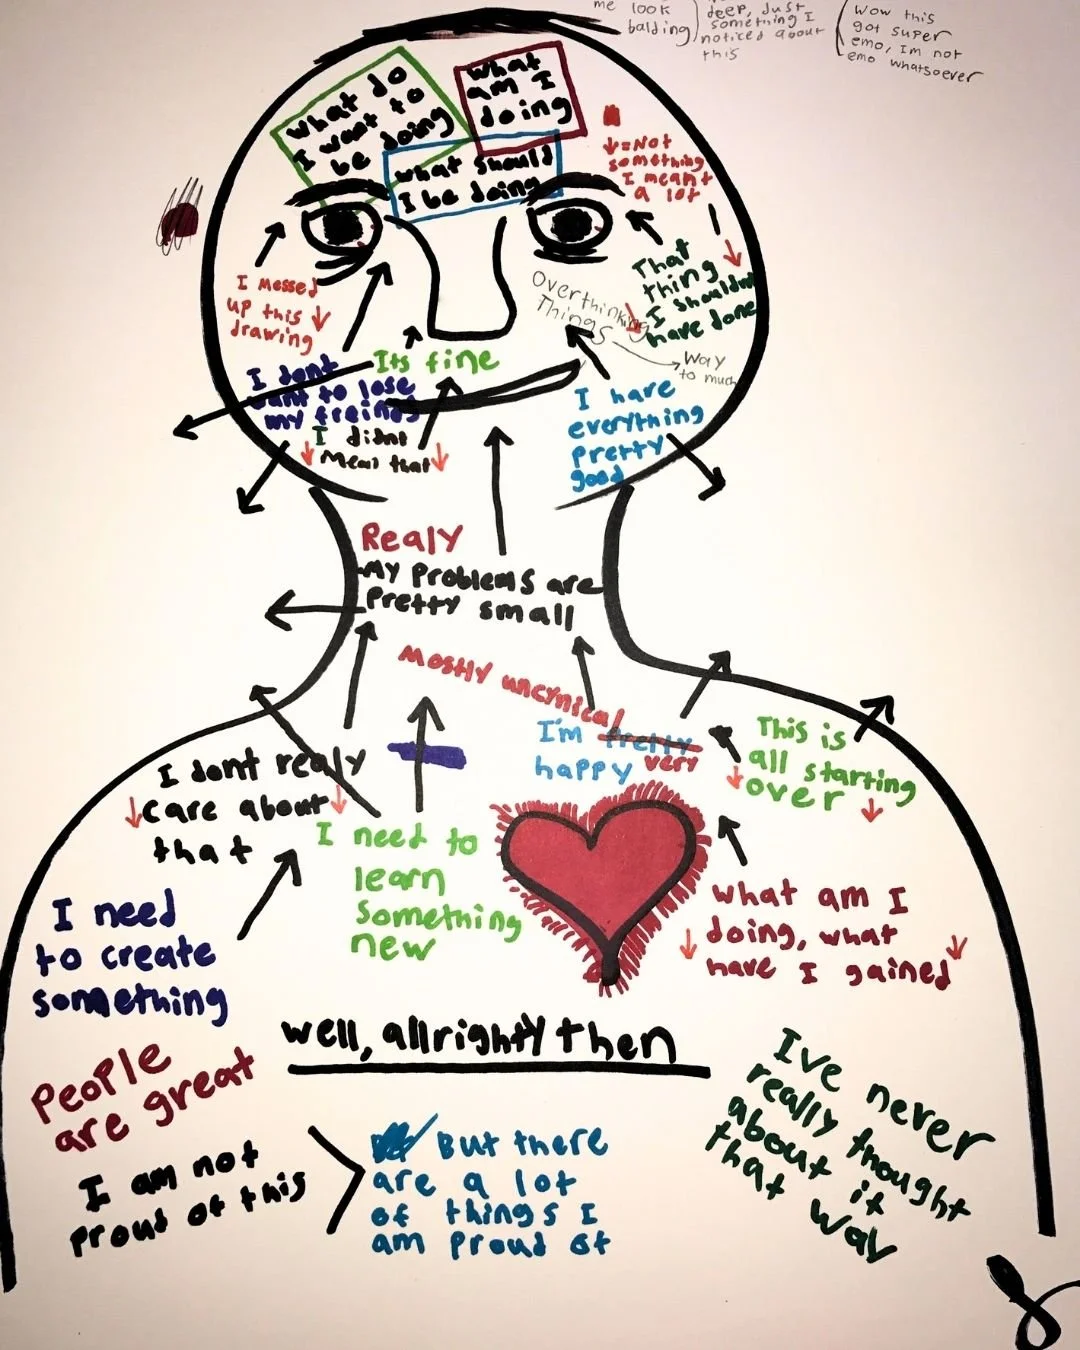 me look
balding
deep, Just
something I
noticed about
this
Wow this
got super
emo, Im not
emo whatsoever
what do
I want to
be doing
what
am I
doing
what should
I be doing
↓=Not
something
I meant
a lot
I messed
up this
drawing
That
thing
I shouldnt
have done
Overthinking
Things
Way
to much
Its fine
I dont
want to lose
my freinds
I didnt
mean that
I have
everything
pretty
good
Realy
My problems are
pretty small
Mostly uncynical
I'm pretty
happy very
This is
all starting
over
I dont realy
care about
that
I need to
learn
something
new
I need
to create
something
what am I
doing, what
have I gained
well, allrighty then
People
are great
I am not
proud of this
But there
are a lot
of things I
am proud of
I've never
really thought
about it
that way